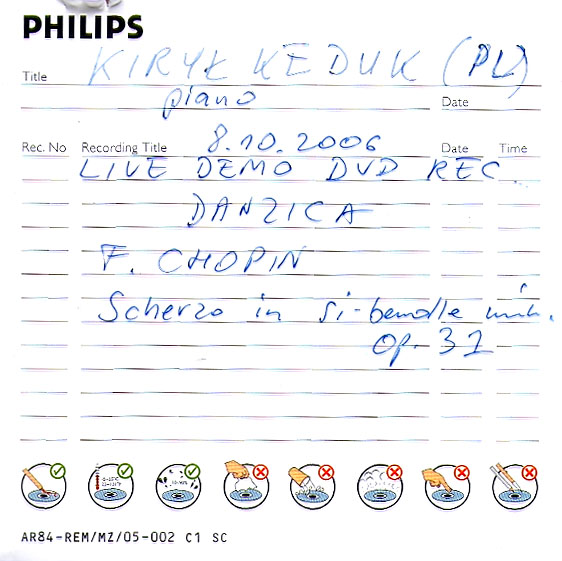 PHILIPS
Title KIRYŁ KEDUK (PL)
piano Date
8.10.2006
Rec. No Recording Title Date Time
LIVE DEMO DVD REC.
DANZICA
F. CHOPIN
Scherzo in si-bemolle min.
op. 31
AR84-REM/MZ/05-002 C1 SC